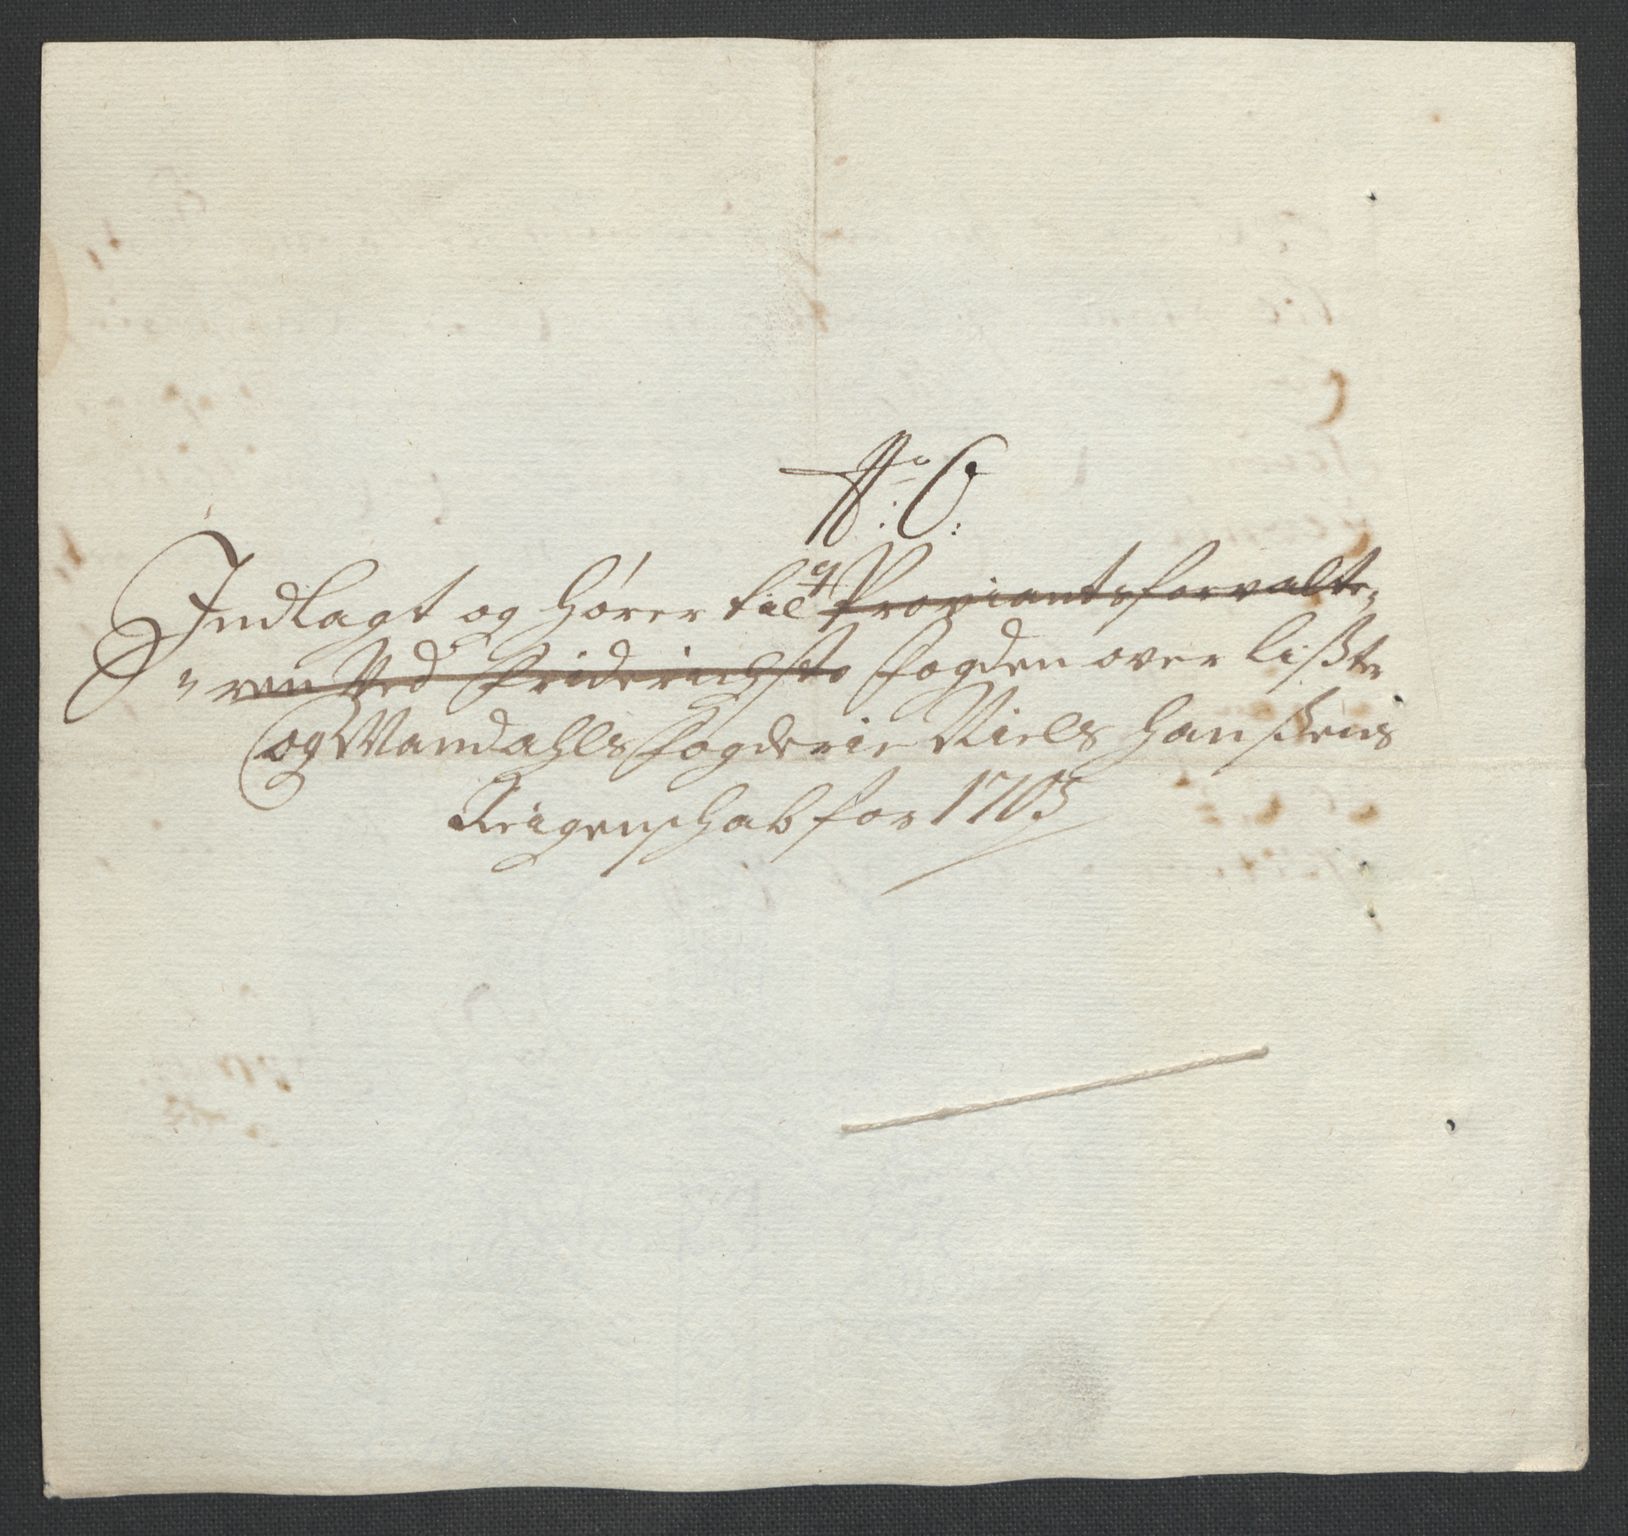 No: C:
Indlagt og hører til Proviantsforvalte-
ren Ved Friderichsst: fogden over Liste
og Mandahls fogderie Niels Hanßens
Reigenschab for 1703